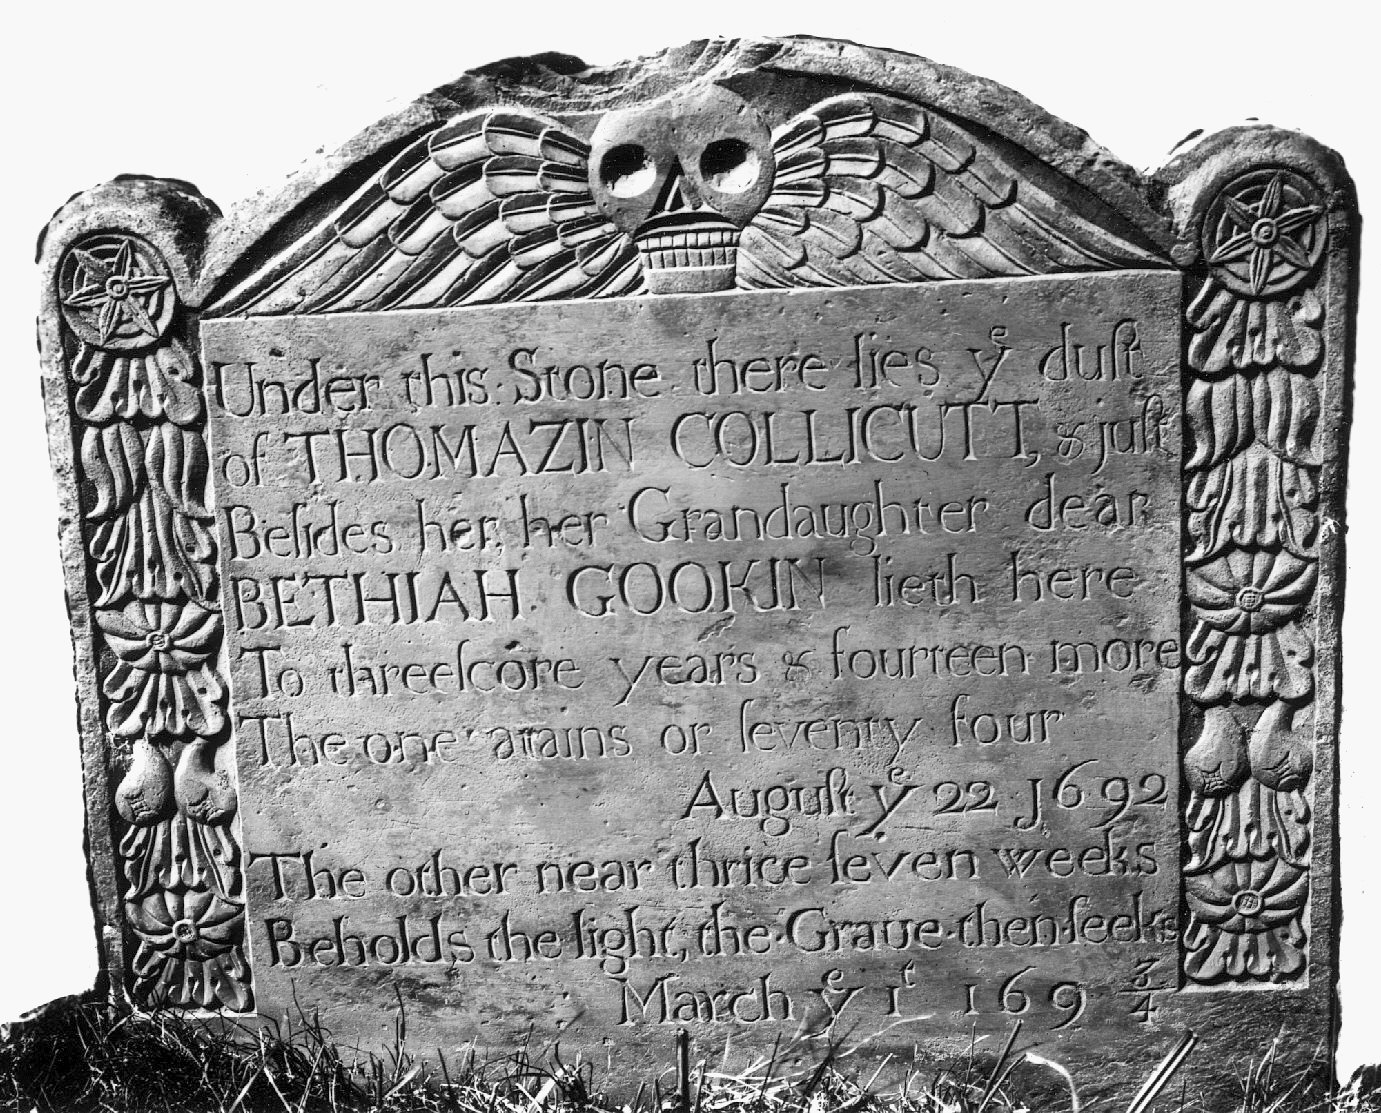 Under this Stone there lies yͤ duſt
of THOMAZIN COLLICUTT, & juſt
Beſides her, her Grandaughter dear
BETHIAH GOOKIN lieth here
To threeſcore years & fourteen more
The one attains or ſeventy four
Auguſt yͤ 22 1692
The other near thrice ſeven weeks
Beholds the light, the Graue then ſeeks
March yͤ 1ᵗ 169 3/4